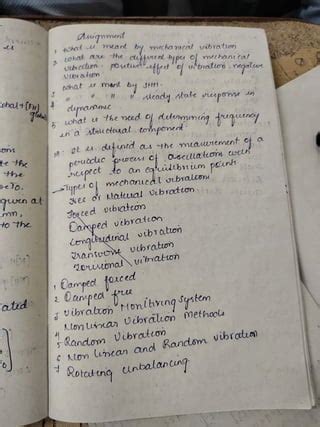 Assignment
1. What is meant by mechanical vibration
2. What are the different types of mechanical
vibration positive effect of vibration, negative
vibration
3 What is meant by SHM.
4. " " " " steady state response in
dynamic
5 What is the need of determining frequency
in a structural component
It is defined as the measurement of a
periodic process of oscillations with
respect to an equilibrium point.
Types of mechanical vibrations
Free or Natural Vibration
Forced vibration
Damped vibration
Longitudinal vibration
Transverse vibration
Torsional vibration
1 Damped forced
2 Damped free
3 Vibration Monitiring System
4 Non linear Vibration Methods
5 Random Vibration
6 Non linear and Random vibration
7 Rotating unbalancing
the
given at
to the